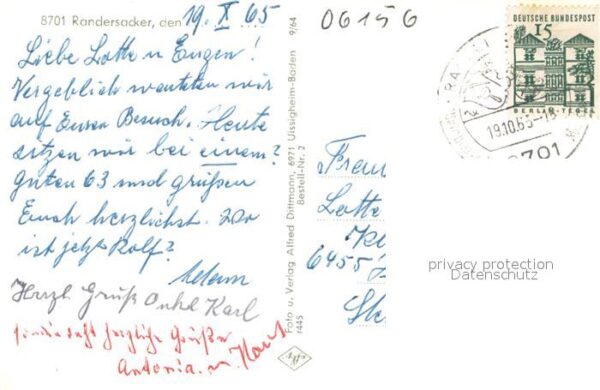 8701 Randersacker, den 19. X 65
Liebe Lotte u Eugen!
Vergeblich warteten wir
auf Euren Besuch. Heute
sitzen wir bei einem?
guten 63 und grüßen
Euch herzlichst. Wo
ist jetzt Rolf?
Herzl Gruß Onkel Karl
herzliche Grüße
Antonia u
9/64
Foto u. Verlag Alfred Dittmann, 6971 Uissigheim-Baden
Bestell-Nr. 2
r445
06156
DEUTSCHE BUNDESPOST
15
BERLIN-TEGEL
19.10.65-15
8701
Lotte
6455
privacy protection
Datenschutz